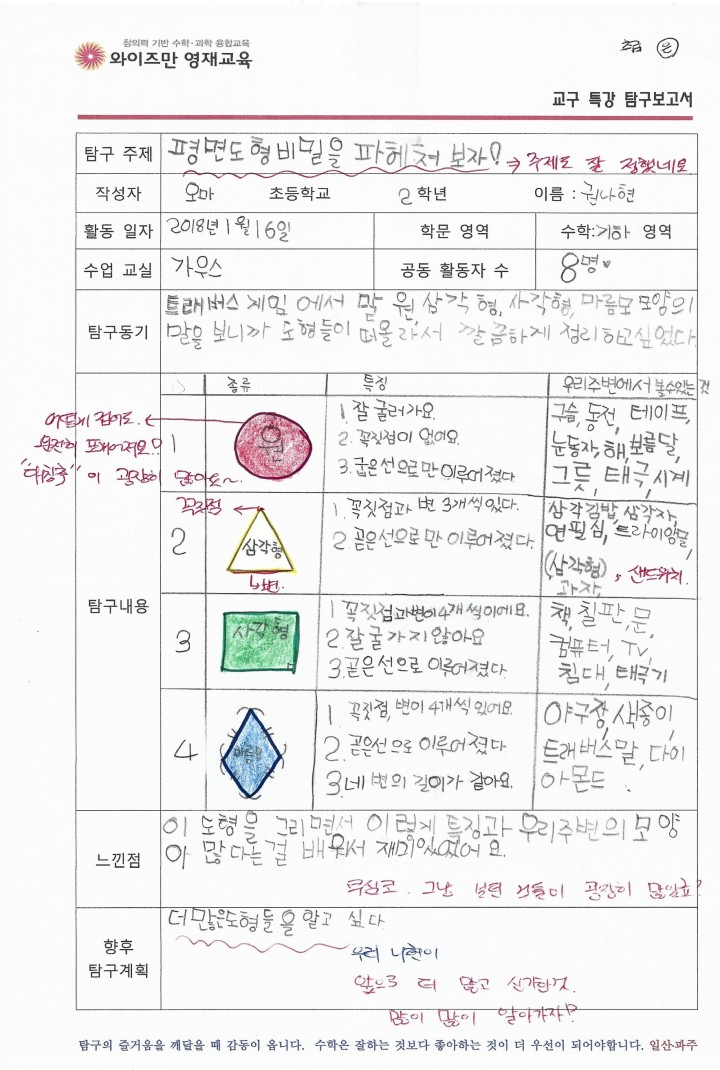 창의력 기반 수학·과학 융합교육
와이즈만 영재교육
교구 특강 탐구보고서
탐구 주제 평면도형 비밀을 파헤쳐 보자! → 주제도 잘 정했네요
작성자 오마 초등학교 2학년 이름 : 권나현
활동 일자 2018년 1월 16일 학문 영역 수학:기하 영역
수업 교실 가우스 공동 활동자 수 8명♥
탐구동기
트래버스 게임에서 말 원, 삼각형, 사각형, 마름모 모양의
말을 보니까 도형들이 떠올라서 깔끔하게 정리하고싶었다.
탐구내용
종류 특징 우리주변에서 볼수있는 것
1 원
1. 잘 굴러가요.
2. 꼭짓점이 없어요.
3. 굽은 선으로만 이루어졌다
구슬, 동전, 테이프,
눈동자, 해, 보름달,
그릇, 태극, 시계
어떻게 접어도
완전히 포개어져요!
"대칭축"이 굉장히 많아요~
2 삼각형
꼭짓점
변.
1. 꼭짓점과 변 3개씩 있다.
2 곧은선으로만 이루어졌다.
삼각김밥, 삼각자,
연필심, 트라이앵글,
(삼각형)
과자, 샌드위치.
3 사각형
1 꼭짓점과변이4개씩이에요.
2. 잘굴가지않아요
3. 곧은선으로 이루어졌다.
책, 칠판, 문,
컴퓨터, TV,
침대, 태극기
4 마름모
1. 꼭짓점, 변이 4개씩 있어요.
2. 곧은선으로 이루어졌다
3. 네 변의 길이가 같아요.
야구장, 색종이,
트래버스말, 다이
아몬드.
느낀점
이 도형을 그리면서 이렇게 특징과 우리주변의 모양
아 많다는걸 배워서 재미있었어요.
무심코 그냥 보던 것들이 굉장히 많았죠?
향후
탐구계획
더많은도형들을 알고 싶다.
우리 나현이
앞으로 더 많고 신기한것
많이 많이 알아가자!
탐구의 즐거움을 깨달을 때 감동이 옵니다. 수학은 잘하는 것보다 좋아하는 것이 더 우선이 되어야합니다. 일산·파주